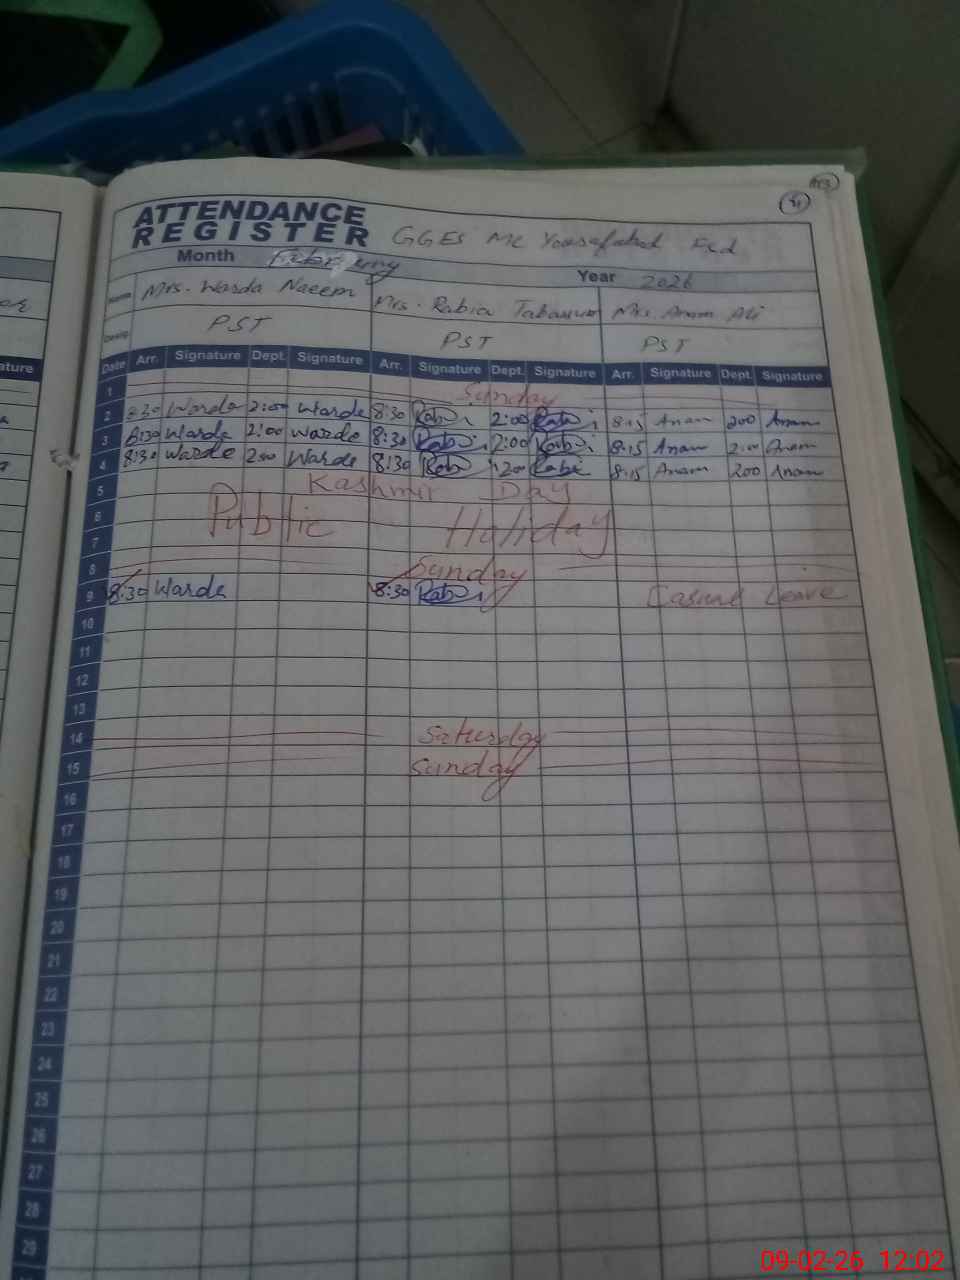 ATTENDANCE
REGISTER GGES MC Yousafabad Fsd
Month February Year 2026
Name Mrs. Warda Naeem Mrs. Rabia Tabassum Mrs. Anam Ali
Desig. PST PST PST
Date Arr. Signature Dept. Signature Arr. Signature Dept. Signature Arr. Signature Dept. Signature
1 Sunday
2 8:30 Warda 2:00 Warda 8:30 Rabi 2:00 Rabi 8:15 Anam 200 Anam
3 8:30 Warda 2:00 Warda 8:30 Rabi 2:00 Rabi 8:15 Anam 2:00 Anam
4 8:30 Warda 2:00 Warda 8:30 Rabi 2:00 Rabi 8:15 Anam 200 Anam
5 Kashmir Day
6 Public Holiday
7
8 Sunday
9 8:30 Warda 8:30 Rabi Casual Leave
10
11
12
13
14 Saturday
15 Sunday
16
17
18
19
20
21
22
23
24
25
26
27
28
29
ature
09-02-26 12:02